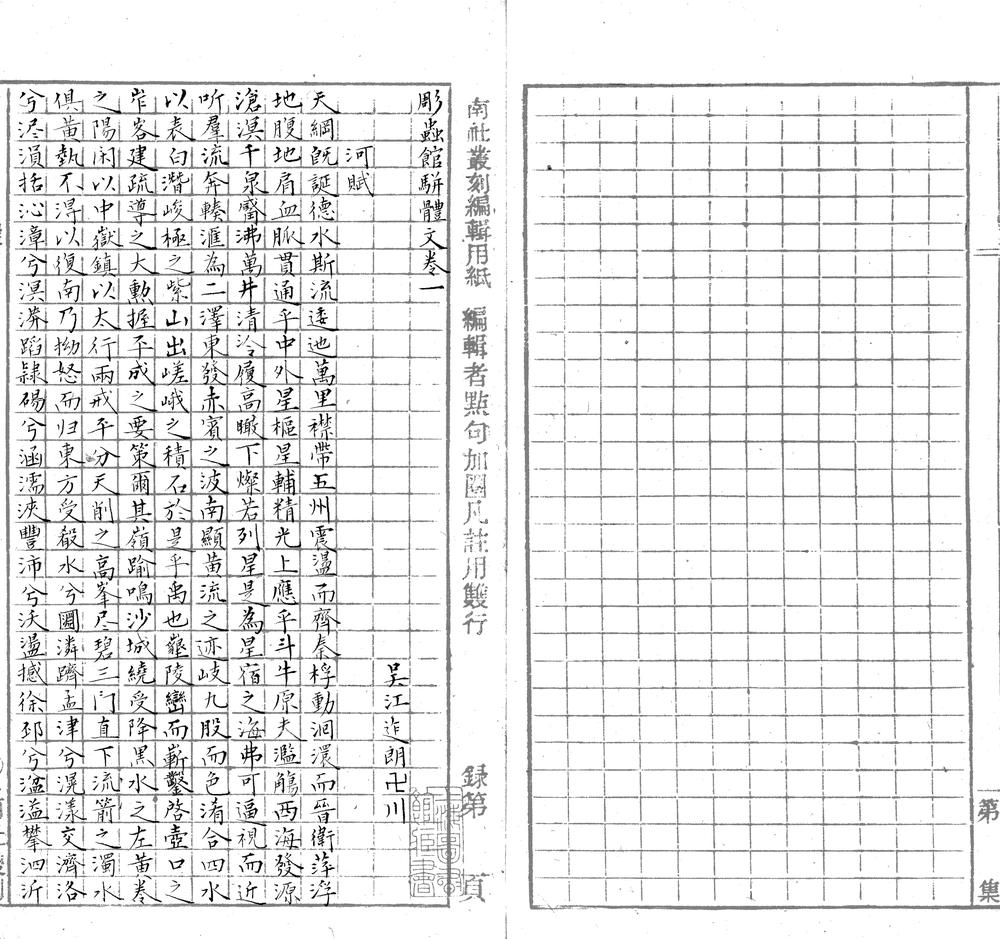 第 集
南社叢刻編輯用紙 編輯者點句加圈凡註用雙行 録第 頁
彫蟲館駢體文卷一
吳江迮朗卍川
河賦
天綱旣誕德水斯流逶迤萬里襟帶五州震盪而齊秦桴動洄澴而晉衛萍浮
地腹地肩血脈貫通乎中外星樞星輔精光上應乎斗牛原夫濫觴西海發源
滄溟千泉齊沸萬井清泠履高瞰下燦若列星是為星宿之海弗可逼視而近
听羣流奔輳滙為二澤東發赤賓之波南顯黃流之迹岐九股而色淆合四水
以表白濳峻極之紫山出嵯峨之積石於是乎禹也龍陵巒而嶄鑿啓壺口之
岝峉建疏導之大勳握平成之要策爾其嶺踰鳴沙城繞受降黑水之左黃巻
之陽闲以中嶽鎮以太行兩戒平分天削之高峯尽碧三门直下流箭之濁水
俱黃執不淂以復南乃拗怒而归東方受殽水兮圗潾躋孟津兮滉漾交濟洛
兮浕溳括沁漳兮溟漭蹈隷碭兮涵濡浹豐沛兮沃盪撼徐邳兮湓溢攀泗沂